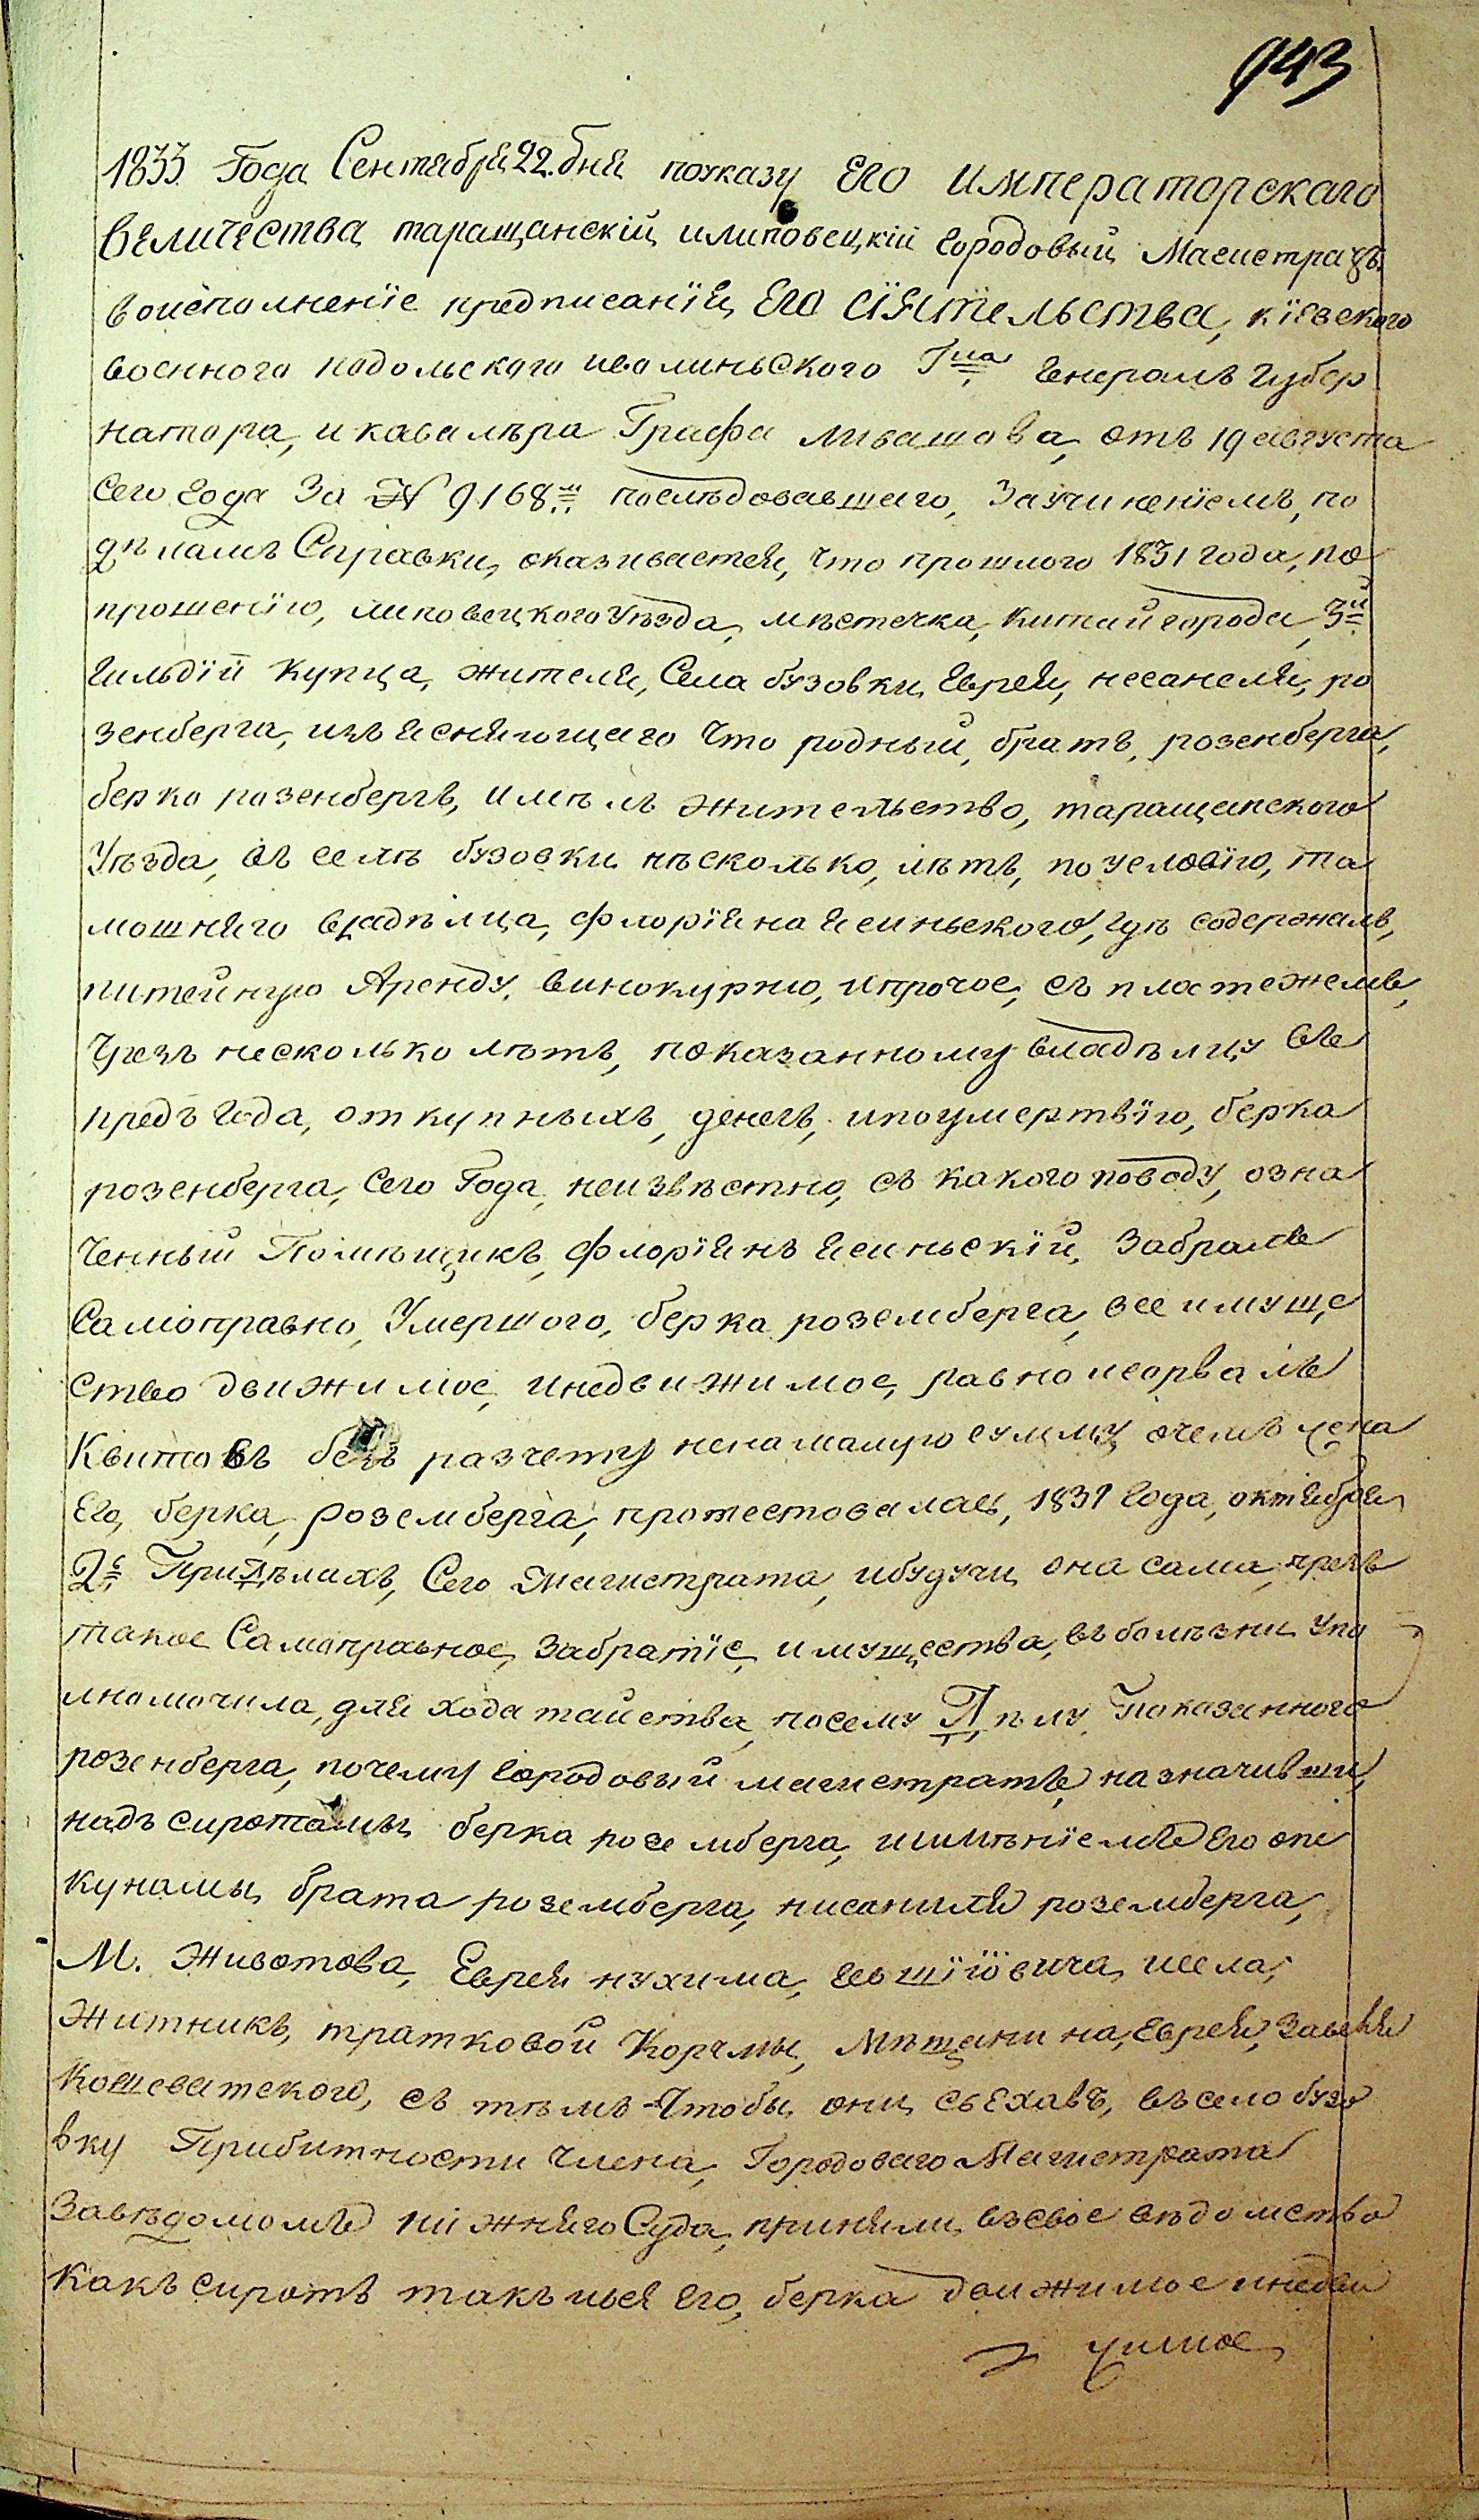 943
1833 Года Сентября 22. дня поуказу Его Императорскаго
величества таращанскій илиповецкій городовый Магистратъ
воисполненіе предписанія, Его сіятельства, кіевского
военного подольского иволиньского Гна Генералъ Губер
натора, и кавалѣра Графа Ливашова, отъ 19 августа
сего года за № 9168м послѣдовавшаго, Заучиненіемъ, по
дѣламъ Справки, оказивается, что прошлого 1831 года, по
прошенію, липовецкого уѣзда, мѣстечка, Китайгорода, 3й
гильдіи купца, жителя, Села бузовки, Еврея, несанеля, ро
зенберга, изъясняющаго что родный, братъ, розенберга,
берко розенбергъ, имѣлъ жительство, таращанского
Уѣзда, въ селѣ бузовки нѣсколько, лѣтъ, по условію, та
мошняго владѣлца, флоріяна ясиньского, гдѣ содержалъ,
питейную Аренду, винокурню, ипрочое, съ платежемъ,
Чрезъ несколько лѣтъ, показанному владѣлцу въ
предъ года, откупныхъ, денегъ, ипоумертвію, берка
розенберга, сего Года, неизвѣстно, съ какого поводу, озна
ченный Помѣщикъ, флоріянъ ясиньскій, забралъ
Самоправно, Умершого, берка роземберга, все имуще
ство движимое, инедвижимое, равно исорвалъ
Квитовъ безъ разчету ненамалую сумму, очемъ жена
Его, берка, роземберга, протестовалась, 1831 года, октября
2г Придѣлахъ, Сего Магистрата, ибудучи она сама, презъ
такое Самоправное, забратіе, имущества, въ болѣзни упо
лномочила, для ходатайства, посему Дѣлу, Показанного
розенберга, почему городовый магистратъ, назначивши,
надъ сиротамы, берка роземберга, иимѣніемъ Его опе
кунамы, брата роземберга, нисаниля роземберга,
М. Животова, Еврея нухима, исела,
Житникъ, тратковой Корчмы, мѣщанина, Еврея,
Кошеватского, съ тѣмъ Чтобы они, съехавъ, въ село бузо
вку Прибитности члена, Городоваго Магистрата
Завѣдомомъ нижняго Суда, приняли, въсвое вѣдомство
Какъ сиротъ такъ ився Его, берка движимое инедви
жимое